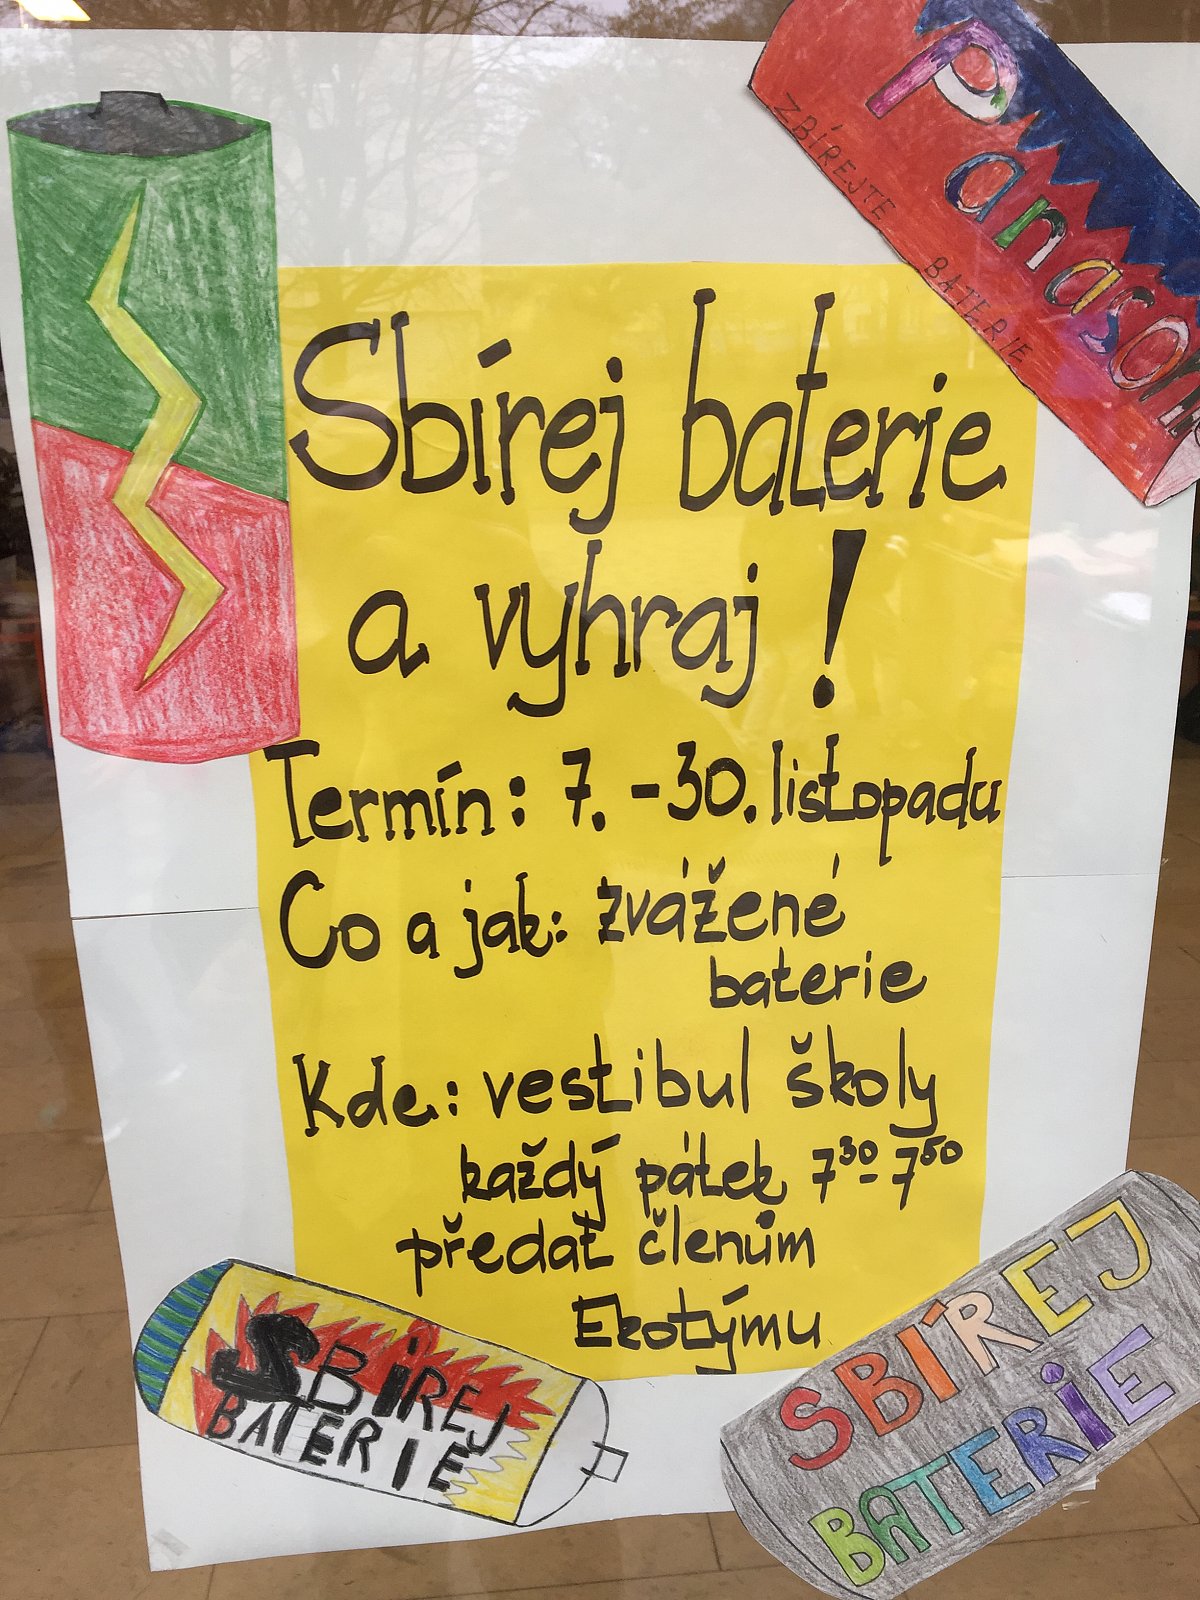 Panasonic
ZBÍREJTE BATERIE
Sbírej baterie
a vyhraj!
Termín: 7. - 30. listopadu
Co a jak: zvážené
baterie
Kde: vestibul školy
každý pátek 7³⁰- 7⁵⁰
předat členům
Ekotýmu
SBÍREJ
BATERIE
SBÍREJ
BATERIE